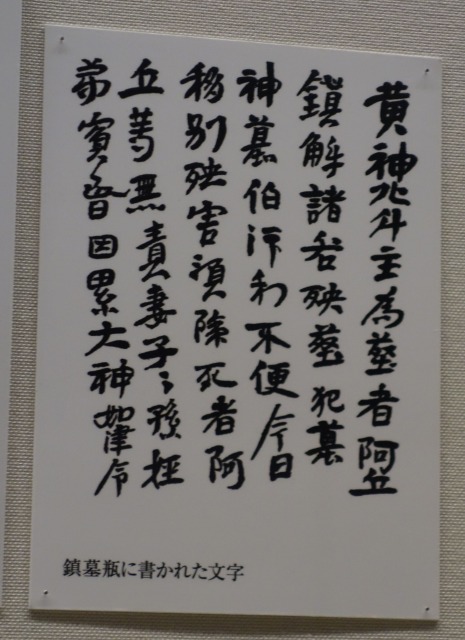 黄神北斗主為葬者阿丘
鎮解諸咎殃葬犯墓
神墓伯 利不便今日
移別殃害須除死者阿
丘等無責妻子〻孫姪
弟賓昏因累大神如律令
鎮墓瓶に書かれた文字